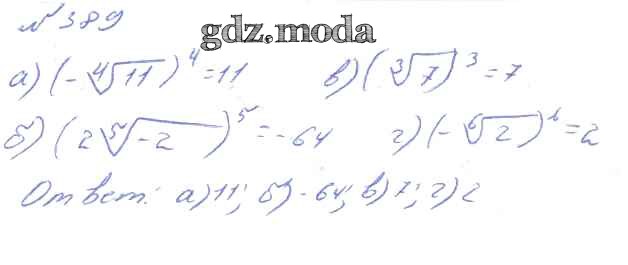 №389
gdz.moda
а) (-⁴√11)⁴=11 в) (³√7)³=7
б) (2⁵√-2)⁵=-64 г) (-⁶√2)⁶=2
Ответ: а) 11; б) -64; в) 7; г) 2